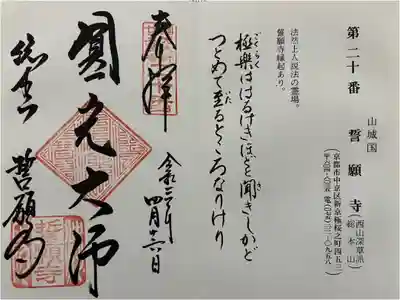 第二十番
山城国
誓願寺
(西山深草派
総本山)
(京都市中京区新京極桜之町四五三
法然上人説法の霊場。
誓願寺縁起あり。
極楽ははるけきほどと聞きしかど
ごくらく
き
つとめて至るところなりけり
いた
奉拝
令和二年
四月十六日
圓光大師
総本山
誓願寺